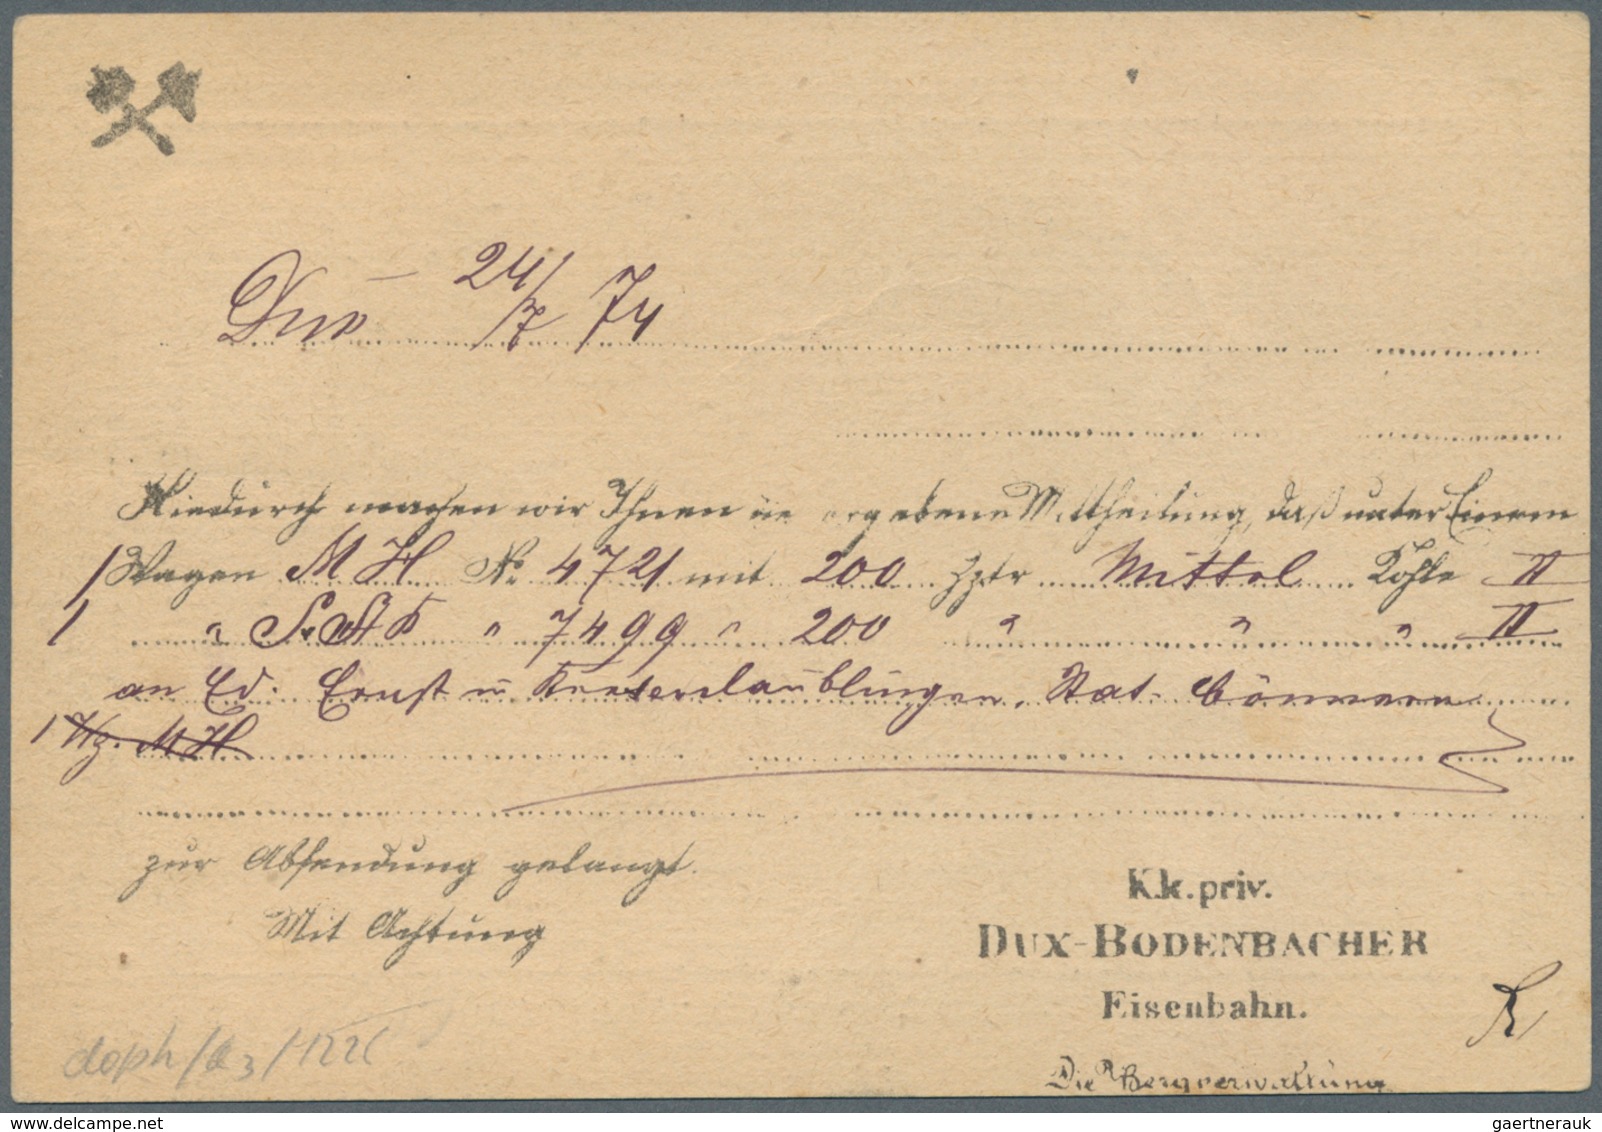 Dux 24/7 74
Hiedurch machen wir Ihnen die ergebene Mittheilung, daß unter Einem
1 Wagen M H No 4721 mit 200 Zztr Mittel Kohle II
1 " " 7499 " 200 " " " II
an Ed. Ernst u Stat. Cönnern
1 Wg. M H
zur Absendung gelangt.
Mit Achtung
K.k. priv.
DUX-BODENBACHER
Eisenbahn.
Die Bergverwaltung
gaertnerauk